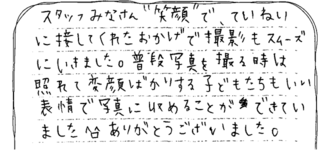 スタッフみなさん"笑顔"で、ていねい
に接してくれたおかげで撮影もスムーズ
にいきました。普段写真を撮る時は
照れて変顔ばかりする子どもたちもいい
表情で写真におさめることができてい
ました^^ ありがとうございました。